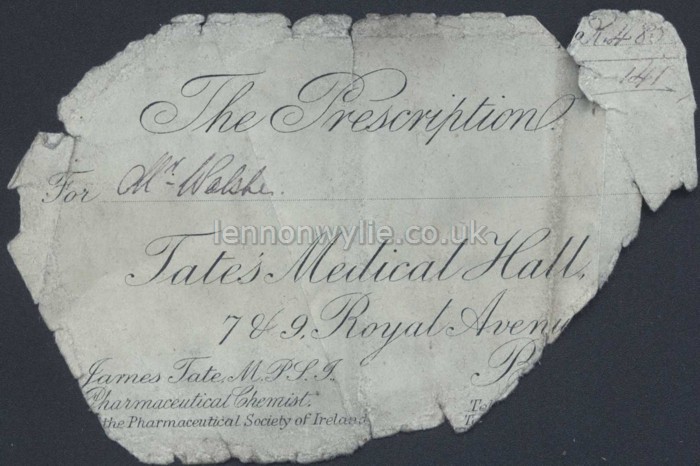 K 483
141
The Prescription.
For Mr. Walshe.
lennonwylie.co.uk
Tate's Medical Hall,
7 & 9, Royal Avenu
James Tate, M.P.S.I.
Pharmaceutical Chemist.
the Pharmaceutical Society of Ireland
Tel